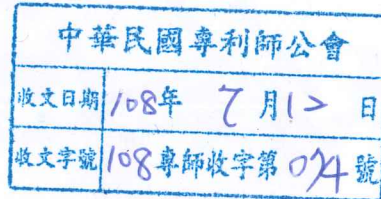 中華民國專利師公會
收文日期 108年 7月12日
收文字號 108專師收字第074號